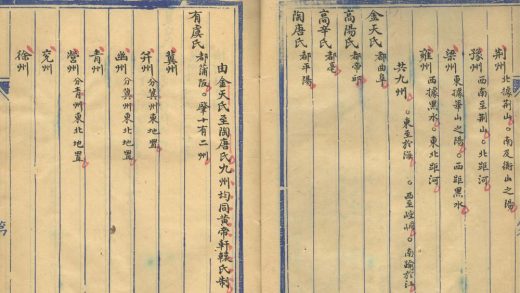 荊州 北據荊山。南及衡山之陽
豫州 西南至荊山。北距河
梁州 東據華山之陽。西距黑水
雍州 西據黑水。東北距河
共九州 。東至於海 。西至崆峒。南踰於江
金天氏 都曲阜
高陽氏 都帝邱
高辛氏 都亳
陶唐氏 都平陽
由金天氏至陶唐氏九州均同黃帝軒轅氏制
有虞氏 都蒲阪。肇十有二州
冀州
幷州 分冀州東地置
幽州 分冀州東北地置
青州
營州 分青州東北地置
兗州
徐州